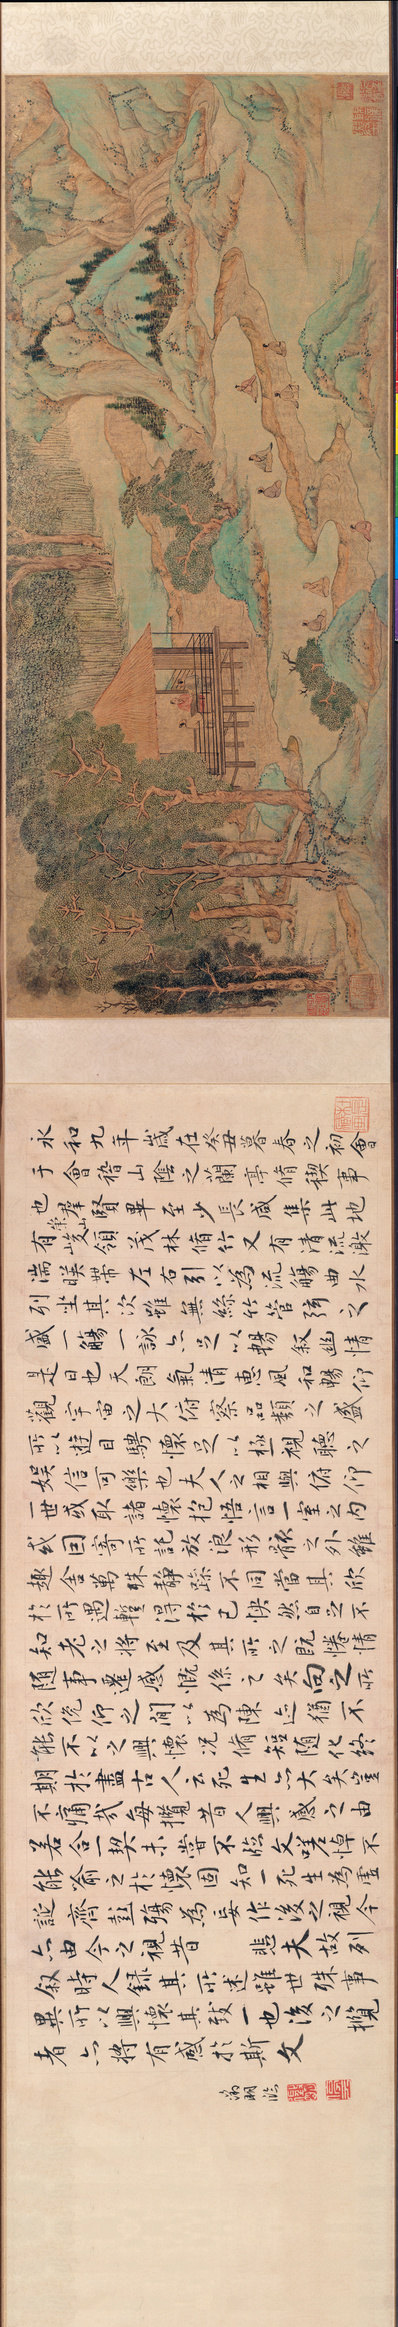 永和九年歲在癸丑暮春之初會
于會稽山陰之蘭亭脩禊事
也群賢畢至少長咸集此地
有崇山峻領茂林脩竹又有清流激
湍暎帶左右引以為流觴曲水
列坐其次雖無絲竹管弦之
盛一觴一詠亦足以暢叙幽情
是日也天朗氣清惠風和暢仰
觀宇宙之大俯察品類之盛
所以遊目騁懷足以極視聽之
娛信可樂也夫人之相與俯仰
一世或取諸懷抱悟言一室之內
或因寄所託放浪形骸之外雖
趣舍萬殊靜躁不同當其欣
於所遇蹔得於己怏然自足不
知老之將至及其所之既惓情
隨事遷感慨係之矣向之所
欣俛仰之間以為陳迹猶不
能不以之興懷況脩短隨化終
期於盡古人云死生亦大矣豈
不痛哉每攬昔人興感之由
若合一契未嘗不臨文嗟悼不
能喻之於懷固知一死生為虛
誕齊彭殤為妄作後之視今
亦由今之視昔 悲夫故列
叙時人錄其所述雖世殊事
異所以興懷其致一也後之攬
者亦將有感於斯文
徵明臨